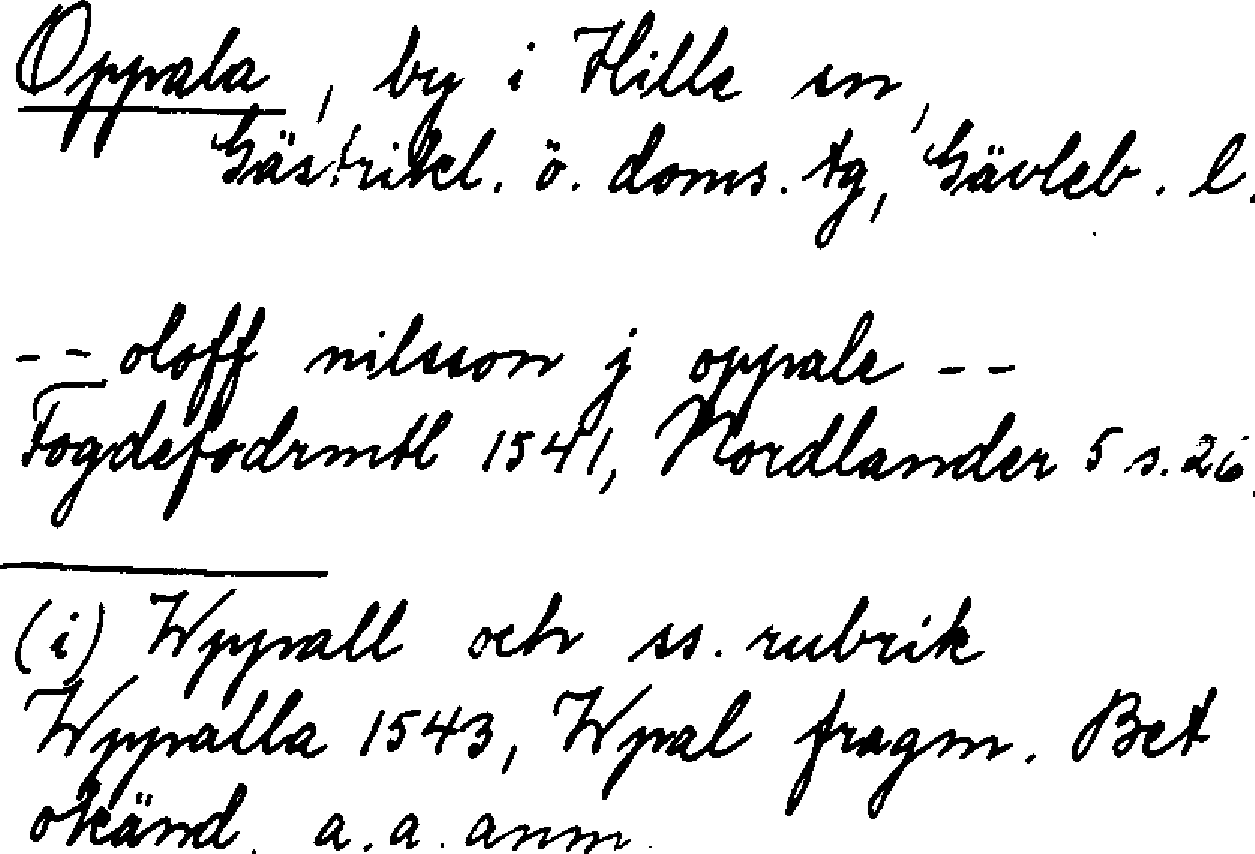 Oppala, by i Hille sn,
Gästrikl. ö. doms. tg, Gävleb. l.
-- oloff nilsson j oppale --
Fogdefodrmtl 1541, Nordlander 5 s. 26.
(i) Wppall och ss. rubrik
Wppalla 1543, Wpal fragm. Bet
okänd. a. a. anm.